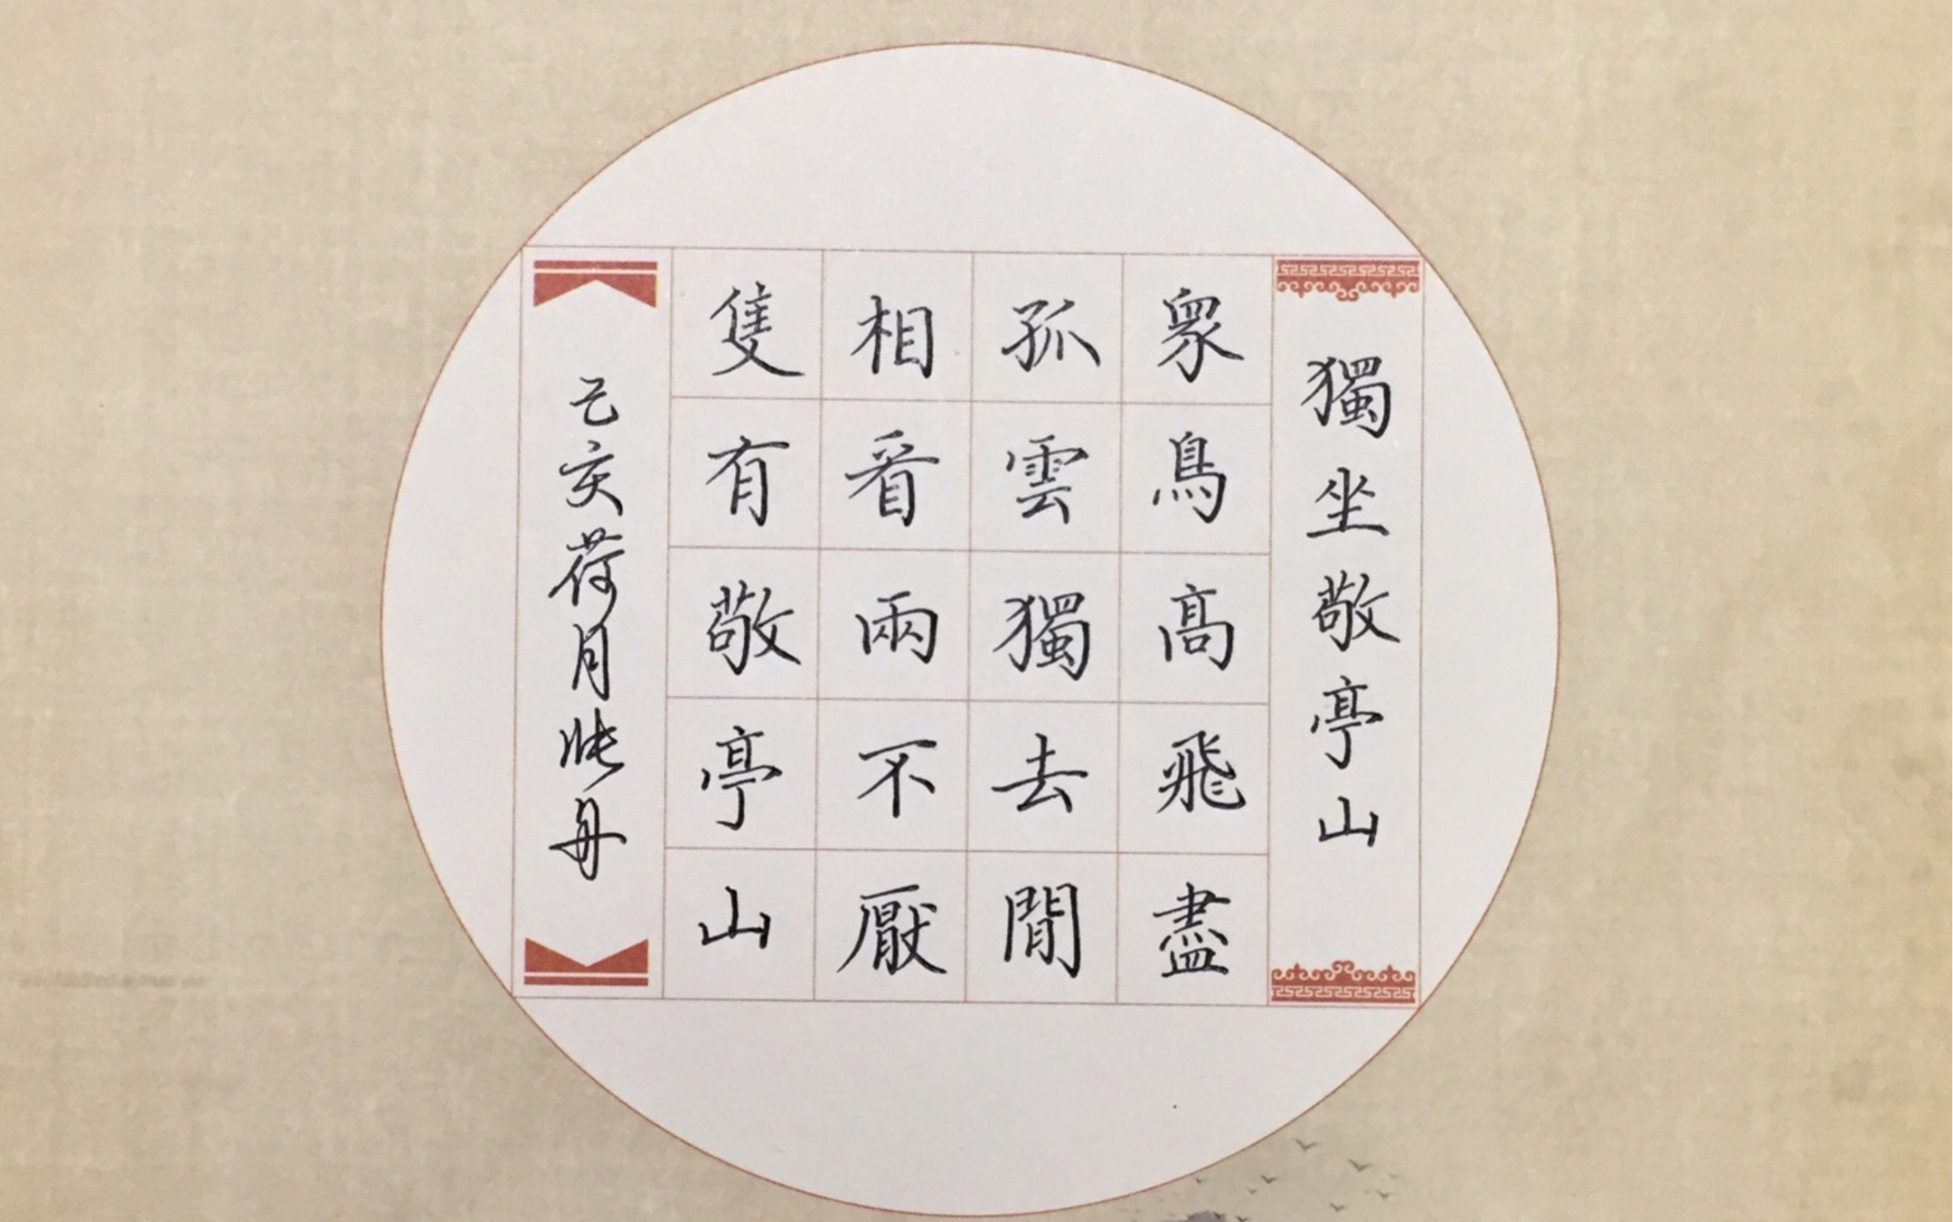 獨坐敬亭山
眾鳥高飛盡
孤雲獨去閒
相看兩不厭
隻有敬亭山
己亥荷月張丹